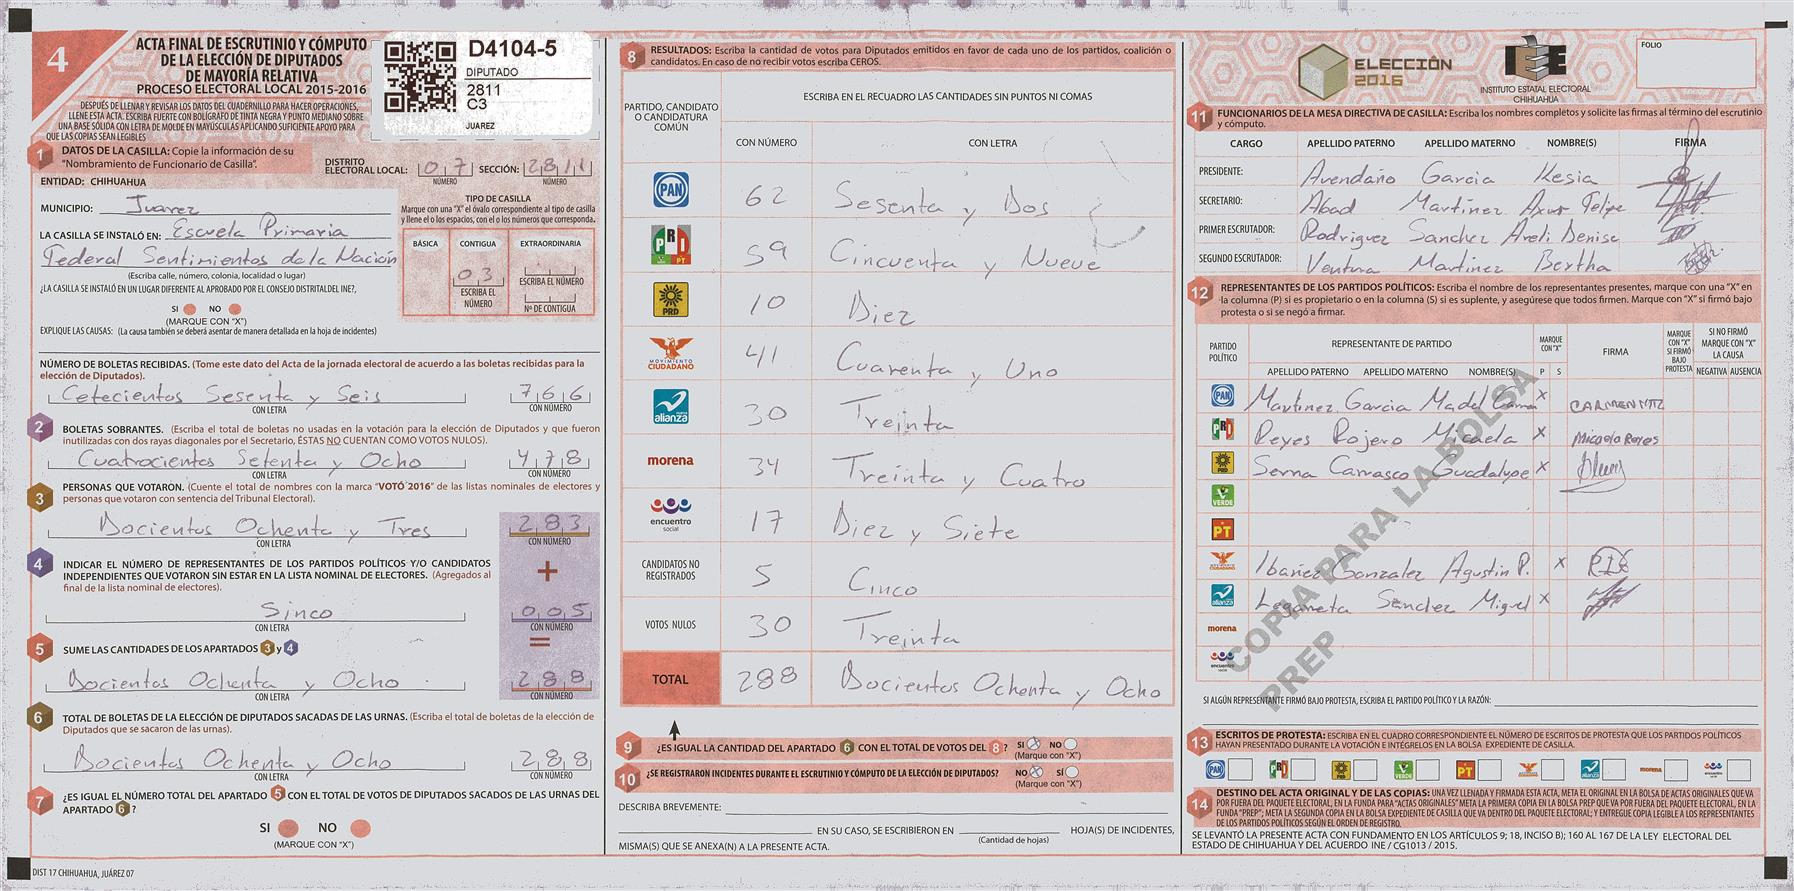 4
ACTA FINAL DE ESCRUTINIO Y CÓMPUTO
DE LA ELECCIÓN DE DIPUTADOS
DE MAYORÍA RELATIVA
PROCESO ELECTORAL LOCAL 2015-2016
DESPUÉS DE LLENAR Y REVISAR LOS DATOS DEL CUADERNILLO PARA HACER OPERACIONES,
LLENE ESTA ACTA. ESCRIBA FUERTE CON BOLÍGRAFO DE TINTA NEGRA Y PUNTO MEDIANO SOBRE
UNA BASE SÓLIDA CON LETRA DE MOLDE EN MAYÚSCULAS APLICANDO SUFICIENTE APOYO PARA
QUE LAS COPIAS SEAN LEGIBLES
D4104-5
DIPUTADO
2811
C3
JUAREZ
1 DATOS DE LA CASILLA: Copie la información de su
"Nombramiento de Funcionario de Casilla".
DISTRITO
ELECTORAL LOCAL: 07 SECCIÓN: 2811
NÚMERO NÚMERO
ENTIDAD: CHIHUAHUA
MUNICIPIO: Juarez
LA CASILLA SE INSTALÓ EN: Escuela Primaria
Federal Sentimientos de la Nación
(Escriba calle, número, colonia, localidad o lugar)
TIPO DE CASILLA
Marque con una "X" el óvalo correspondiente al tipo de casilla
y llene el o los espacios, con el o los números que corresponda.
BÁSICA CONTIGUA EXTRAORDINARIA
03
ESCRIBA EL NÚMERO
ESCRIBA EL NÚMERO
Nº DE CONTIGUA
¿LA CASILLA SE INSTALÓ EN UN LUGAR DIFERENTE AL APROBADO POR EL CONSEJO DISTRITAL DEL INE?,
SI NO
(MARQUE CON "X")
EXPLIQUE LAS CAUSAS: (La causa también se deberá asentar de manera detallada en la hoja de incidentes)
NÚMERO DE BOLETAS RECIBIDAS. (Tome este dato del Acta de la jornada electoral de acuerdo a las boletas recibidas para la
elección de Diputados).
Cetecientos Sesenta y Seis 766
CON LETRA CON NÚMERO
2 BOLETAS SOBRANTES. (Escriba el total de boletas no usadas en la votación para la elección de Diputados y que fueron
inutilizadas con dos rayas diagonales por el Secretario, ÉSTAS NO CUENTAN COMO VOTOS NULOS).
Cuatrocientos Setenta y Ocho 478
CON LETRA CON NÚMERO
3 PERSONAS QUE VOTARON. (Cuente el total de nombres con la marca "VOTÓ 2016" de las listas nominales de electores y
personas que votaron con sentencia del Tribunal Electoral).
Docientos Ochenta y Tres 283
CON LETRA CON NÚMERO
4 INDICAR EL NÚMERO DE REPRESENTANTES DE LOS PARTIDOS POLÍTICOS Y/O CANDIDATOS
INDEPENDIENTES QUE VOTARON SIN ESTAR EN LA LISTA NOMINAL DE ELECTORES. (Agregados al
final de la lista nominal de electores).
+
Sinco 005
CON LETRA CON NÚMERO
=
5 SUME LAS CANTIDADES DE LOS APARTADOS 3 y 4
Docientos Ochenta y Ocho 288
CON LETRA CON NÚMERO
6 TOTAL DE BOLETAS DE LA ELECCIÓN DE DIPUTADOS SACADAS DE LAS URNAS. (Escriba el total de boletas de la elección de
Diputados que se sacaron de las urnas).
Docientos Ochenta y Ocho 288
CON LETRA CON NÚMERO
7 ¿ES IGUAL EL NÚMERO TOTAL DEL APARTADO 5 CON EL TOTAL DE VOTOS DE DIPUTADOS SACADOS DE LAS URNAS DEL
APARTADO 6?
SI NO
(MARQUE CON "X")
DIST 17 CHIHUAHUA, JUÁREZ 07
8 RESULTADOS: Escriba la cantidad de votos para Diputados emitidos en favor de cada uno de los partidos, coalición o
candidatos. En caso de no recibir votos escriba CEROS.
PARTIDO, CANDIDATO
O CANDIDATURA
COMÚN
ESCRIBA EN EL RECUADRO LAS CANTIDADES SIN PUNTOS NI COMAS
CON NÚMERO CON LETRA
PAN 62 Sesenta y Dos
PRI PT 59 Cincuenta y Nueve
PRD 10 Diez
MOVIMIENTO CIUDADANO 41 Cuarenta y Uno
nueva alianza 30 Treinta
morena 34 Treinta y Cuatro
encuentro social 17 Diez y Siete
CANDIDATOS NO REGISTRADOS 5 Cinco
VOTOS NULOS 30 Treinta
TOTAL 288 Docientos Ochenta y Ocho
9 ¿ES IGUAL LA CANTIDAD DEL APARTADO 6 CON EL TOTAL DE VOTOS DEL 8? SI X NO
(Marque con "X")
10 ¿SE REGISTRARON INCIDENTES DURANTE EL ESCRUTINIO Y CÓMPUTO DE LA ELECCIÓN DE DIPUTADOS? NO X SÍ
(Marque con "X")
DESCRIBA BREVEMENTE:
EN SU CASO, SE ESCRIBIERON EN HOJA(S) DE INCIDENTES,
(Cantidad de hojas)
MISMA(S) QUE SE ANEXA(N) A LA PRESENTE ACTA.
ELECCIÓN
2016
IEE
INSTITUTO ESTATAL ELECTORAL
CHIHUAHUA
FOLIO
11 FUNCIONARIOS DE LA MESA DIRECTIVA DE CASILLA: Escriba los nombres completos y solicite las firmas al término del escrutinio
y cómputo.
CARGO APELLIDO PATERNO APELLIDO MATERNO NOMBRE(S) FIRMA
PRESIDENTE: Avendaño Garcia Kesia
SECRETARIO: Abad Martinez Axur Felipe
PRIMER ESCRUTADOR: Rodriguez Sanchez Areli Denise
SEGUNDO ESCRUTADOR: Ventura Martinez Bertha
12 REPRESENTANTES DE LOS PARTIDOS POLÍTICOS: Escriba el nombre de los representantes presentes, marque con una "X" en
la columna (P) si es propietario o en la columna (S) si es suplente, y asegúrese que todos firmen. Marque con "X" si firmó bajo
protesta o si se negó a firmar.
PARTIDO POLÍTICO
REPRESENTANTE DE PARTIDO
MARQUE CON "X"
FIRMA
MARQUE CON "X" SI FIRMÓ BAJO PROTESTA
SI NO FIRMÓ MARQUE CON "X" LA CAUSA
APELLIDO PATERNO APELLIDO MATERNO NOMBRE(S) P S NEGATIVA AUSENCIA
PAN Martinez Garcia Ma del Carmen X CARMEN MTZ
PRI Reyes Rojero Micaela X Micaela Reyes
PRD Serna Carrasco Guadalupe X
VERDE
PT
MOVIMIENTO CIUDADANO Ibañez Gonzalez Agustin P. X
alianza Legarreta Sanchez Miguel X
morena
encuentro social
COPIA PARA LA BOLSA
PREP
SI ALGÚN REPRESENTANTE FIRMÓ BAJO PROTESTA, ESCRIBA EL PARTIDO POLÍTICO Y LA RAZÓN:
13 ESCRITOS DE PROTESTA: ESCRIBA EN EL CUADRO CORRESPONDIENTE EL NÚMERO DE ESCRITOS DE PROTESTA QUE LOS PARTIDOS POLÍTICOS
HAYAN PRESENTADO DURANTE LA VOTACIÓN E INTÉGRELOS EN LA BOLSA EXPEDIENTE DE CASILLA.
PAN PRI PRD VERDE PT alianza morena
14 DESTINO DEL ACTA ORIGINAL Y DE LAS COPIAS: UNA VEZ LLENADA Y FIRMADA ESTA ACTA, META EL ORIGINAL EN LA BOLSA DE ACTAS ORIGINALES QUE VA
POR FUERA DEL PAQUETE ELECTORAL, EN LA FUNDA PARA "ACTAS ORIGINALES" META LA PRIMERA COPIA EN LA BOLSA PREP QUE VA POR FUERA DEL PAQUETE ELECTORAL, EN LA
FUNDA "PREP"; META LA SEGUNDA COPIA EN LA BOLSA EXPEDIENTE DE CASILLA QUE VA DENTRO DEL PAQUETE ELECTORAL; Y ENTREGUE COPIA LEGIBLE A LOS REPRESENTANTES
DE LOS PARTIDOS POLÍTICOS SEGÚN EL ORDEN DE REGISTRO.
SE LEVANTÓ LA PRESENTE ACTA CON FUNDAMENTO EN LOS ARTÍCULOS 9; 18, INCISO B); 160 AL 167 DE LA LEY ELECTORAL DEL
ESTADO DE CHIHUAHUA Y DEL ACUERDO INE / CG1013 / 2015.